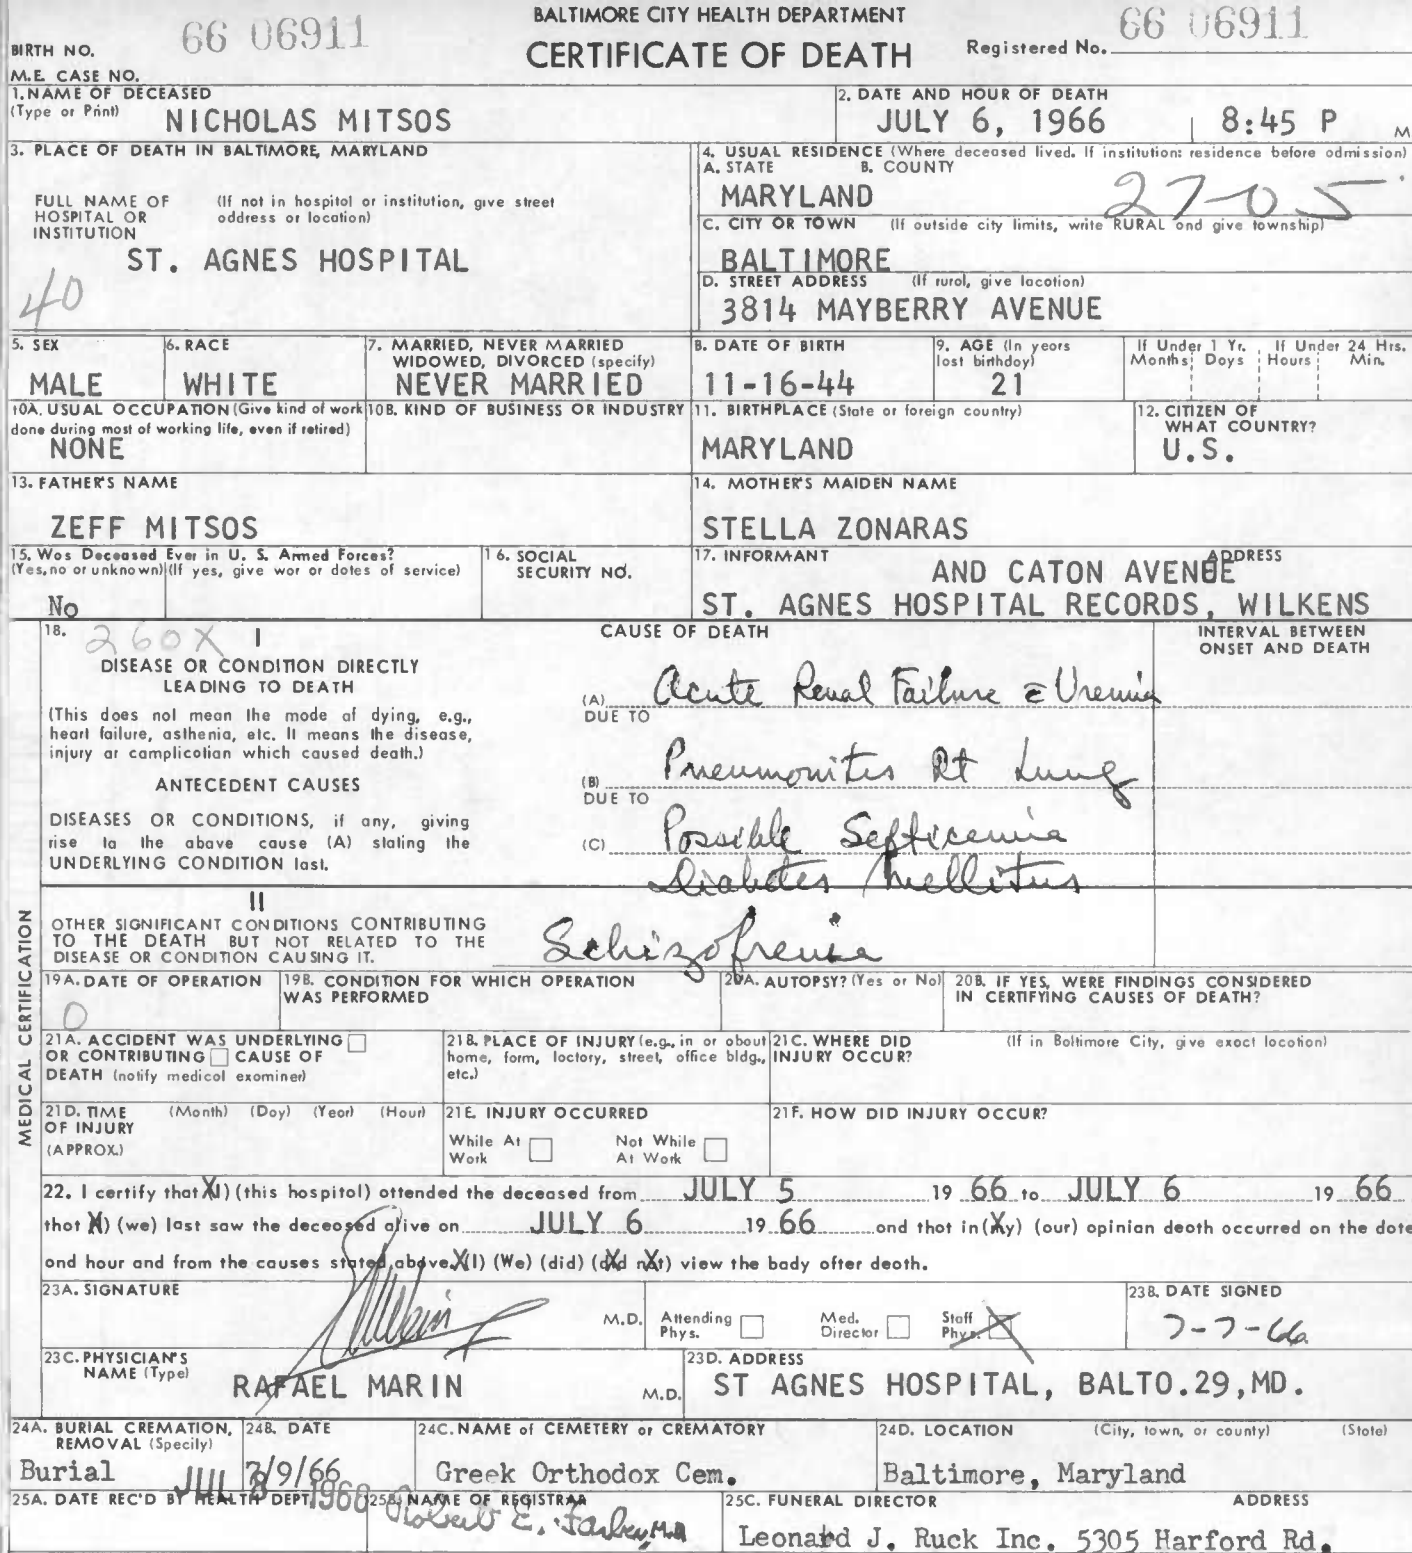 BALTIMORE CITY HEALTH DEPARTMENT
CERTIFICATE OF DEATH
BIRTH NO. 66 06911
Registered No. 66 06911
M.E. CASE NO.
1. NAME OF DECEASED
(Type or Print) NICHOLAS MITSOS
2. DATE AND HOUR OF DEATH
JULY 6, 1966 8:45 P M
3. PLACE OF DEATH IN BALTIMORE, MARYLAND
FULL NAME OF HOSPITAL OR INSTITUTION
(If not in hospital or institution, give street address or location)
ST. AGNES HOSPITAL
40
4. USUAL RESIDENCE (Where deceased lived. If institution: residence before admission)
A. STATE B. COUNTY
MARYLAND 27-05
C. CITY OR TOWN (If outside city limits, write RURAL and give township)
BALTIMORE
D. STREET ADDRESS (If rural, give location)
3814 MAYBERRY AVENUE
5. SEX
MALE
6. RACE
WHITE
7. MARRIED, NEVER MARRIED
WIDOWED, DIVORCED (specify)
NEVER MARRIED
8. DATE OF BIRTH
11-16-44
9. AGE (In years last birthday)
21
If Under 1 Yr. If Under 24 Hrs.
Months Days Hours Min.
10A. USUAL OCCUPATION (Give kind of work done during most of working life, even if retired)
NONE
10B. KIND OF BUSINESS OR INDUSTRY
11. BIRTHPLACE (State or foreign country)
MARYLAND
12. CITIZEN OF WHAT COUNTRY?
U.S.
13. FATHER'S NAME
ZEFF MITSOS
14. MOTHER'S MAIDEN NAME
STELLA ZONARAS
15. Was Deceased Ever in U. S. Armed Forces?
(Yes, no or unknown) (If yes, give war or dates of service)
No
16. SOCIAL SECURITY NO.
17. INFORMANT ADDRESS
AND CATON AVENUE
ST. AGNES HOSPITAL RECORDS, WILKENS
MEDICAL CERTIFICATION
18. 260X I
CAUSE OF DEATH
INTERVAL BETWEEN ONSET AND DEATH
DISEASE OR CONDITION DIRECTLY
LEADING TO DEATH
(This does not mean the mode of dying, e.g.,
heart failure, asthenia, etc. It means the disease,
injury or complication which caused death.)
(A) Acute Renal Failure c̄ Uremia
DUE TO
ANTECEDENT CAUSES
(B) Pneumonitis Rt Lung
DUE TO
DISEASES OR CONDITIONS, if any, giving
rise to the above cause (A) stating the
UNDERLYING CONDITION last.
(C) Possible Septicemia
Diabetes Mellitus
II
OTHER SIGNIFICANT CONDITIONS CONTRIBUTING
TO THE DEATH BUT NOT RELATED TO THE
DISEASE OR CONDITION CAUSING IT.
Schizofrenia
19A. DATE OF OPERATION
0
19B. CONDITION FOR WHICH OPERATION WAS PERFORMED
20A. AUTOPSY? (Yes or No)
20B. IF YES, WERE FINDINGS CONSIDERED IN CERTIFYING CAUSES OF DEATH?
21A. ACCIDENT WAS UNDERLYING
OR CONTRIBUTING CAUSE OF
DEATH (notify medical examiner)
21B. PLACE OF INJURY (e.g., in or about home, farm, factory, street, office bldg., etc.)
21C. WHERE DID INJURY OCCUR? (If in Baltimore City, give exact location)
21D. TIME OF INJURY (APPROX.) (Month) (Day) (Year) (Hour)
21E. INJURY OCCURRED
While At Work Not While At Work
21F. HOW DID INJURY OCCUR?
22. I certify that X(I) (this hospital) attended the deceased from JULY 5 19 66 to JULY 6 19 66
that X) (we) last saw the deceased alive on JULY 6 19 66 and that in (Xy) (our) opinion death occurred on the date
and hour and from the causes stated above. X(I) (We) (did) (did not) view the body after death.
23A. SIGNATURE M.D.
Attending Phys. Med. Director Staff Phys. X
23B. DATE SIGNED
7-7-66
23C. PHYSICIAN'S NAME (Type)
RAFAEL MARIN M.D.
23D. ADDRESS
ST AGNES HOSPITAL, BALTO.29,MD.
24A. BURIAL CREMATION, REMOVAL (Specify)
Burial
24B. DATE
7/9/66
24C. NAME of CEMETERY or CREMATORY
Greek Orthodox Cem.
24D. LOCATION (City, town, or county) (State)
Baltimore, Maryland
25A. DATE REC'D BY HEALTH DEPT.
JUL 8 1966
25B. NAME OF REGISTRAR
Robert E. Farber, M.D.
25C. FUNERAL DIRECTOR ADDRESS
Leonard J. Ruck Inc. 5305 Harford Rd.